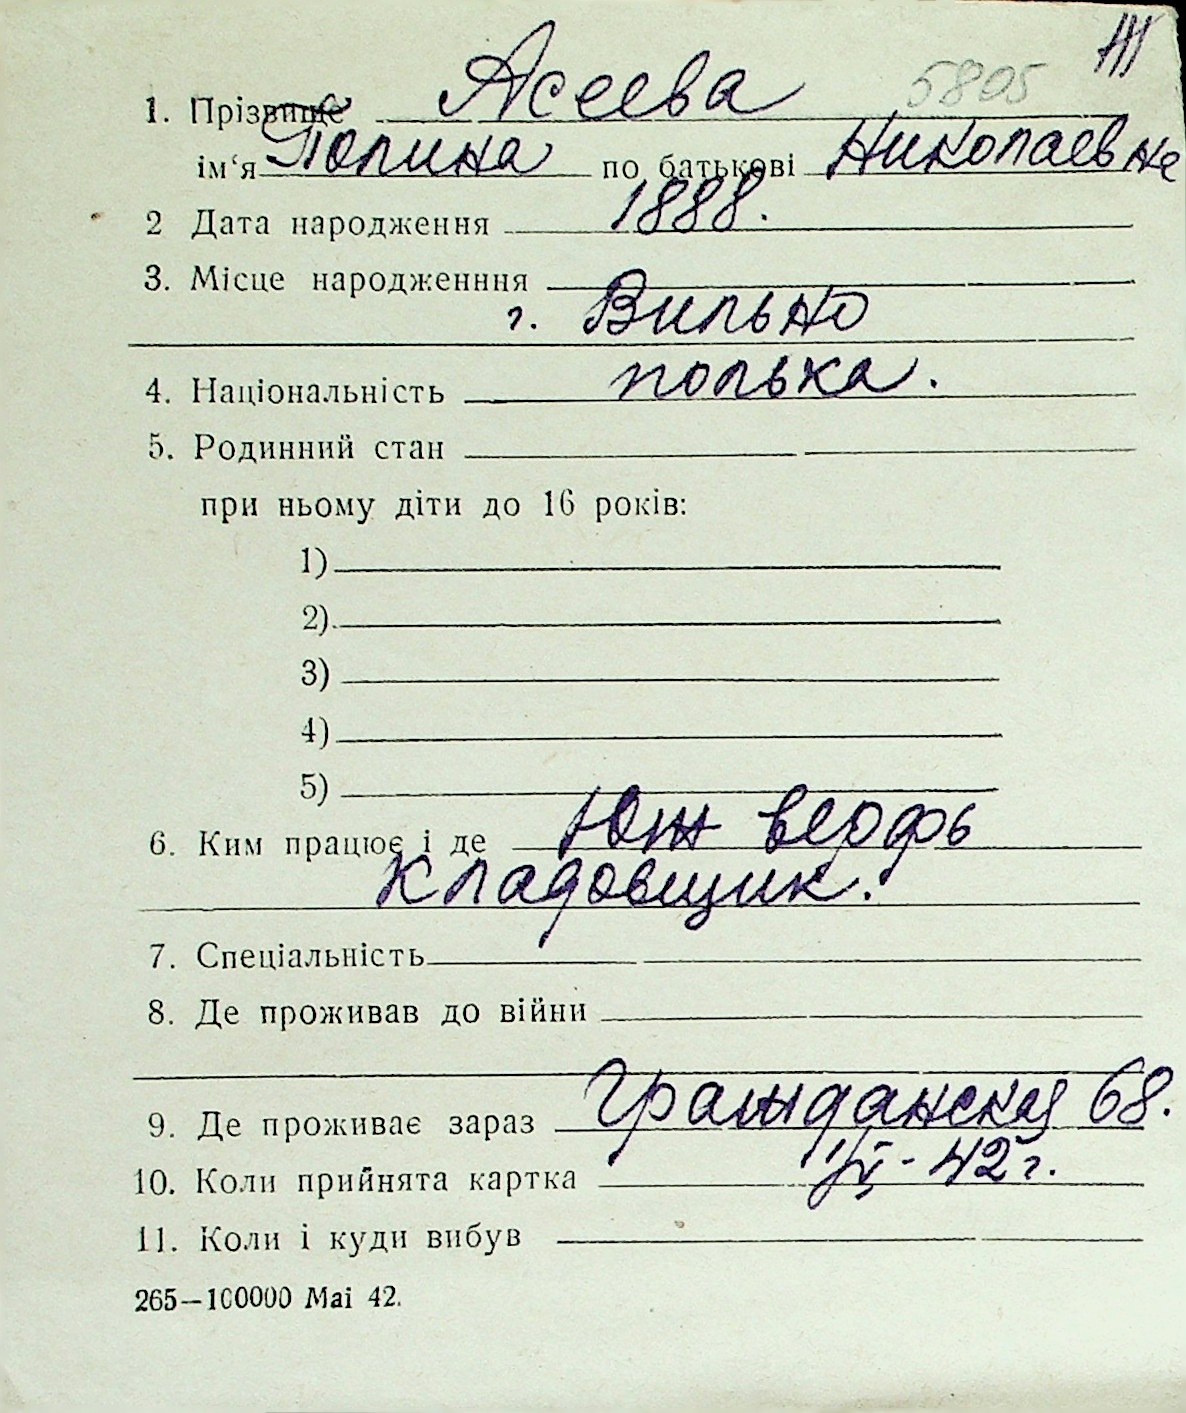 5805
1. Прізвище Асеева
ім‘я Полина по батькові Николаевна
2 Дата народження 1888.
3. Місце народженння
г. Вильно
4. Національність полька.
5. Родинний стан
при ньому діти до 16 років:
1)
2)
3)
4)
5)
6. Ким працює і де Юж верфь
кладовщик.
7. Спеціальність
8. Де проживав до війни
9. Де проживає зараз 68.
10. Коли прийнята картка 42 г.
11. Коли і куди вибув
265—100000 Mai 42.